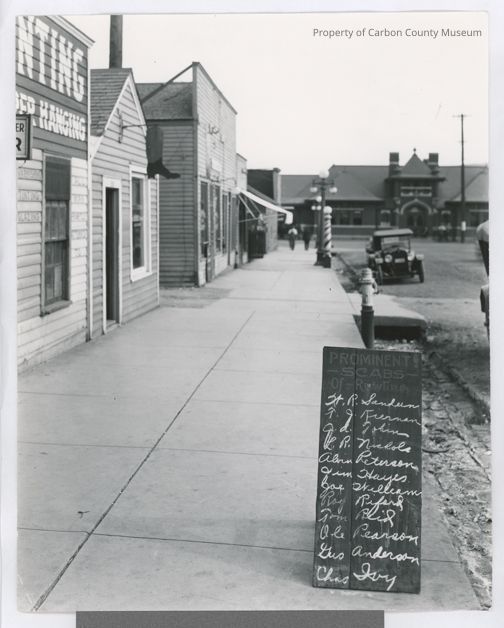 Property of Carbon County Museum
NTING
PER HANGING
ER
R
PROMINENT
SCABS
Of - Rawlins
H. R. Sandum
T. J. Kiernan
J. d. Tobin
L R. Nichols
Alvin Peterson
Jim Hayes
Joe William
Roy Riford
Tom Reid
Ole Pearson
Gus Anderson
Chas Ivy